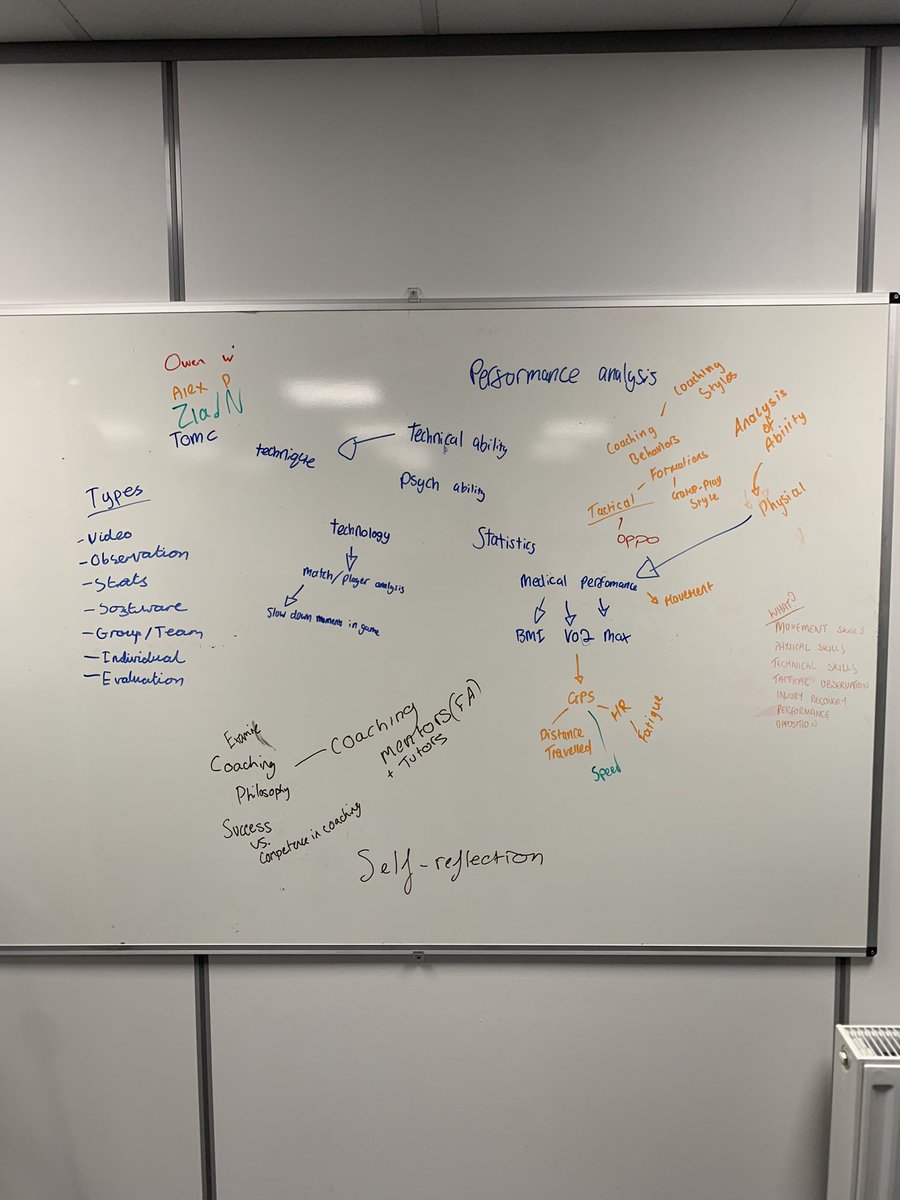 Owen w
Alex P
Ziad N
Tom C
Performance analysis
Coaching
Styles
Coaching
Behaviors
Analysis
of
Ability
Technical ability
technique
Psych ability
Formations
Game-Play
Style
Tactical
Oppo
Physical
Types
- Video
- Observation
- Stats
- Software
- Group/Team
- Individual
- Evaluation
Technology
match/player analysis
Slow down moments in game
Statistics
Medical performance
Movement
BMI VO2 max
GPS
HR
Fatigue
Distance
Travelled
Speed
WHAT?
MOVEMENT SKILLS
PHYSICAL SKILLS
TECHNICAL SKILLS
TACTICAL OBSERVATION
INJURY RECOVERY
PERFORMANCE
OPPOSITION
Coaching
Philosophy
Coaching
mentors (FA)
+ Tutors
Success
vs.
Competence in coaching
Self-reflection